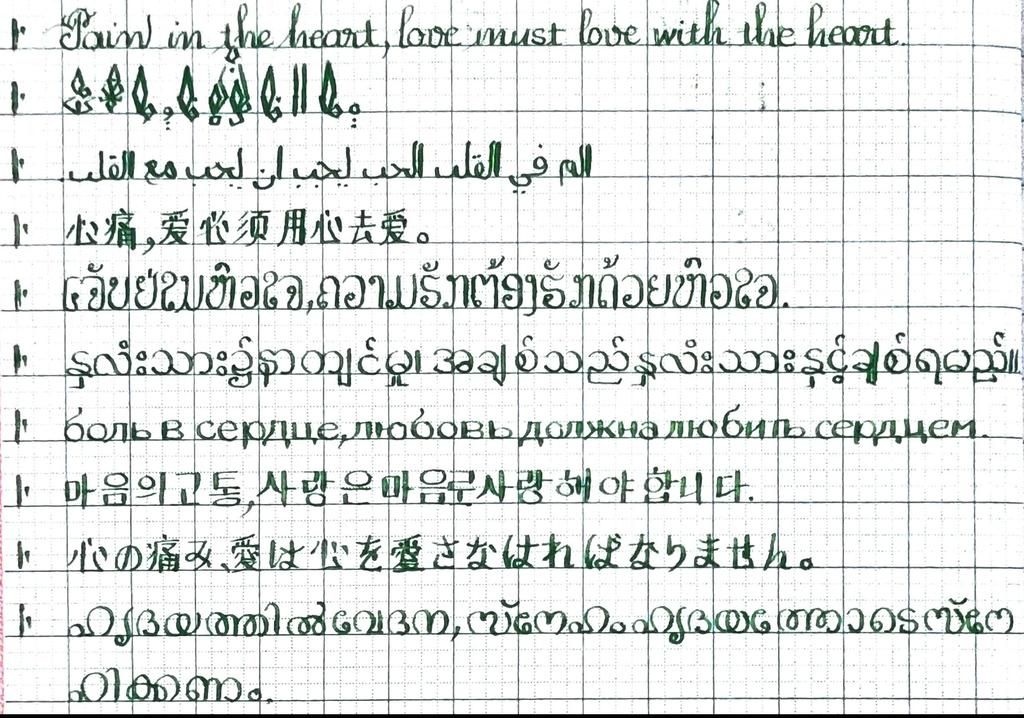 Pain in the heart, love must love with the heart.
الم في القلب الحب يجب ان يحب مع القلب.
心痛,爱必须用心去爱。
ເຈັບຢູ່ໃນຫົວໃຈ,ຄວາມຮັກຕ້ອງຮັກດ້ວຍຫົວໃຈ.
နှလုံးသား၌နာကျင်မှု၊ အချစ်သည်နှလုံးသားနှင့်ချစ်ရမည်။
боль в сердце, любовь должна любить сердцем.
마음의고통,사랑은마음로사랑해야합니다.
心の痛み、愛は心を愛さなければなりません。
ഹൃദയത്തിൽ വേദന, സ്നേഹം ഹൃദയത്തോടെ സ്നേ
ഹിക്കണം.